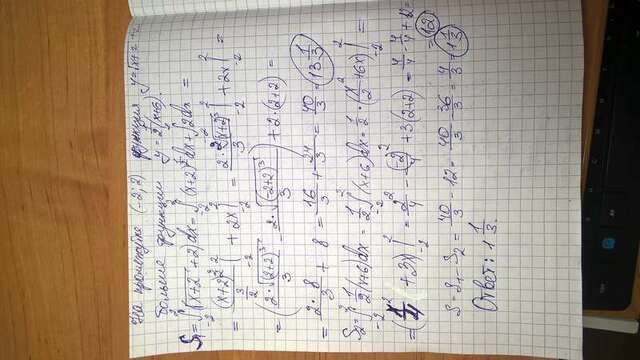 На промежутке (-2; 2) функция y=√x+2 + 2
больше функции y=1/2(x+6).
S₁=∫₋₂²(√x+2+2)dx=∫₋₂²(x+2)^(1/2)dx+∫₋₂²2dx=
=(x+2)^(3/2)/(3/2)|₋₂²+2x|₋₂²=2·√(x+2)³/3|₋₂²+2x|₋₂²=
=(2·√(2+2)³/3-2·√(-2+2)³/3)+2·(2+2)=
=2·8/3+8=16/3+24/3=40/3=(13 1/3)
S₂=∫₋₂²1/2(x+6)dx=1/2∫₋₂²(x+6)dx=1/2·(x²/2+6x)|₋₂²=
=(x²/4+3x)|₋₂²=2²/4-(-2)²/4+3(2+2)=4/4-4/4+12=
=(12)
S=S₁-S₂=40/3-12=40/3-36/3=4/3=(1 1/3)
Ответ: 1 1/3.